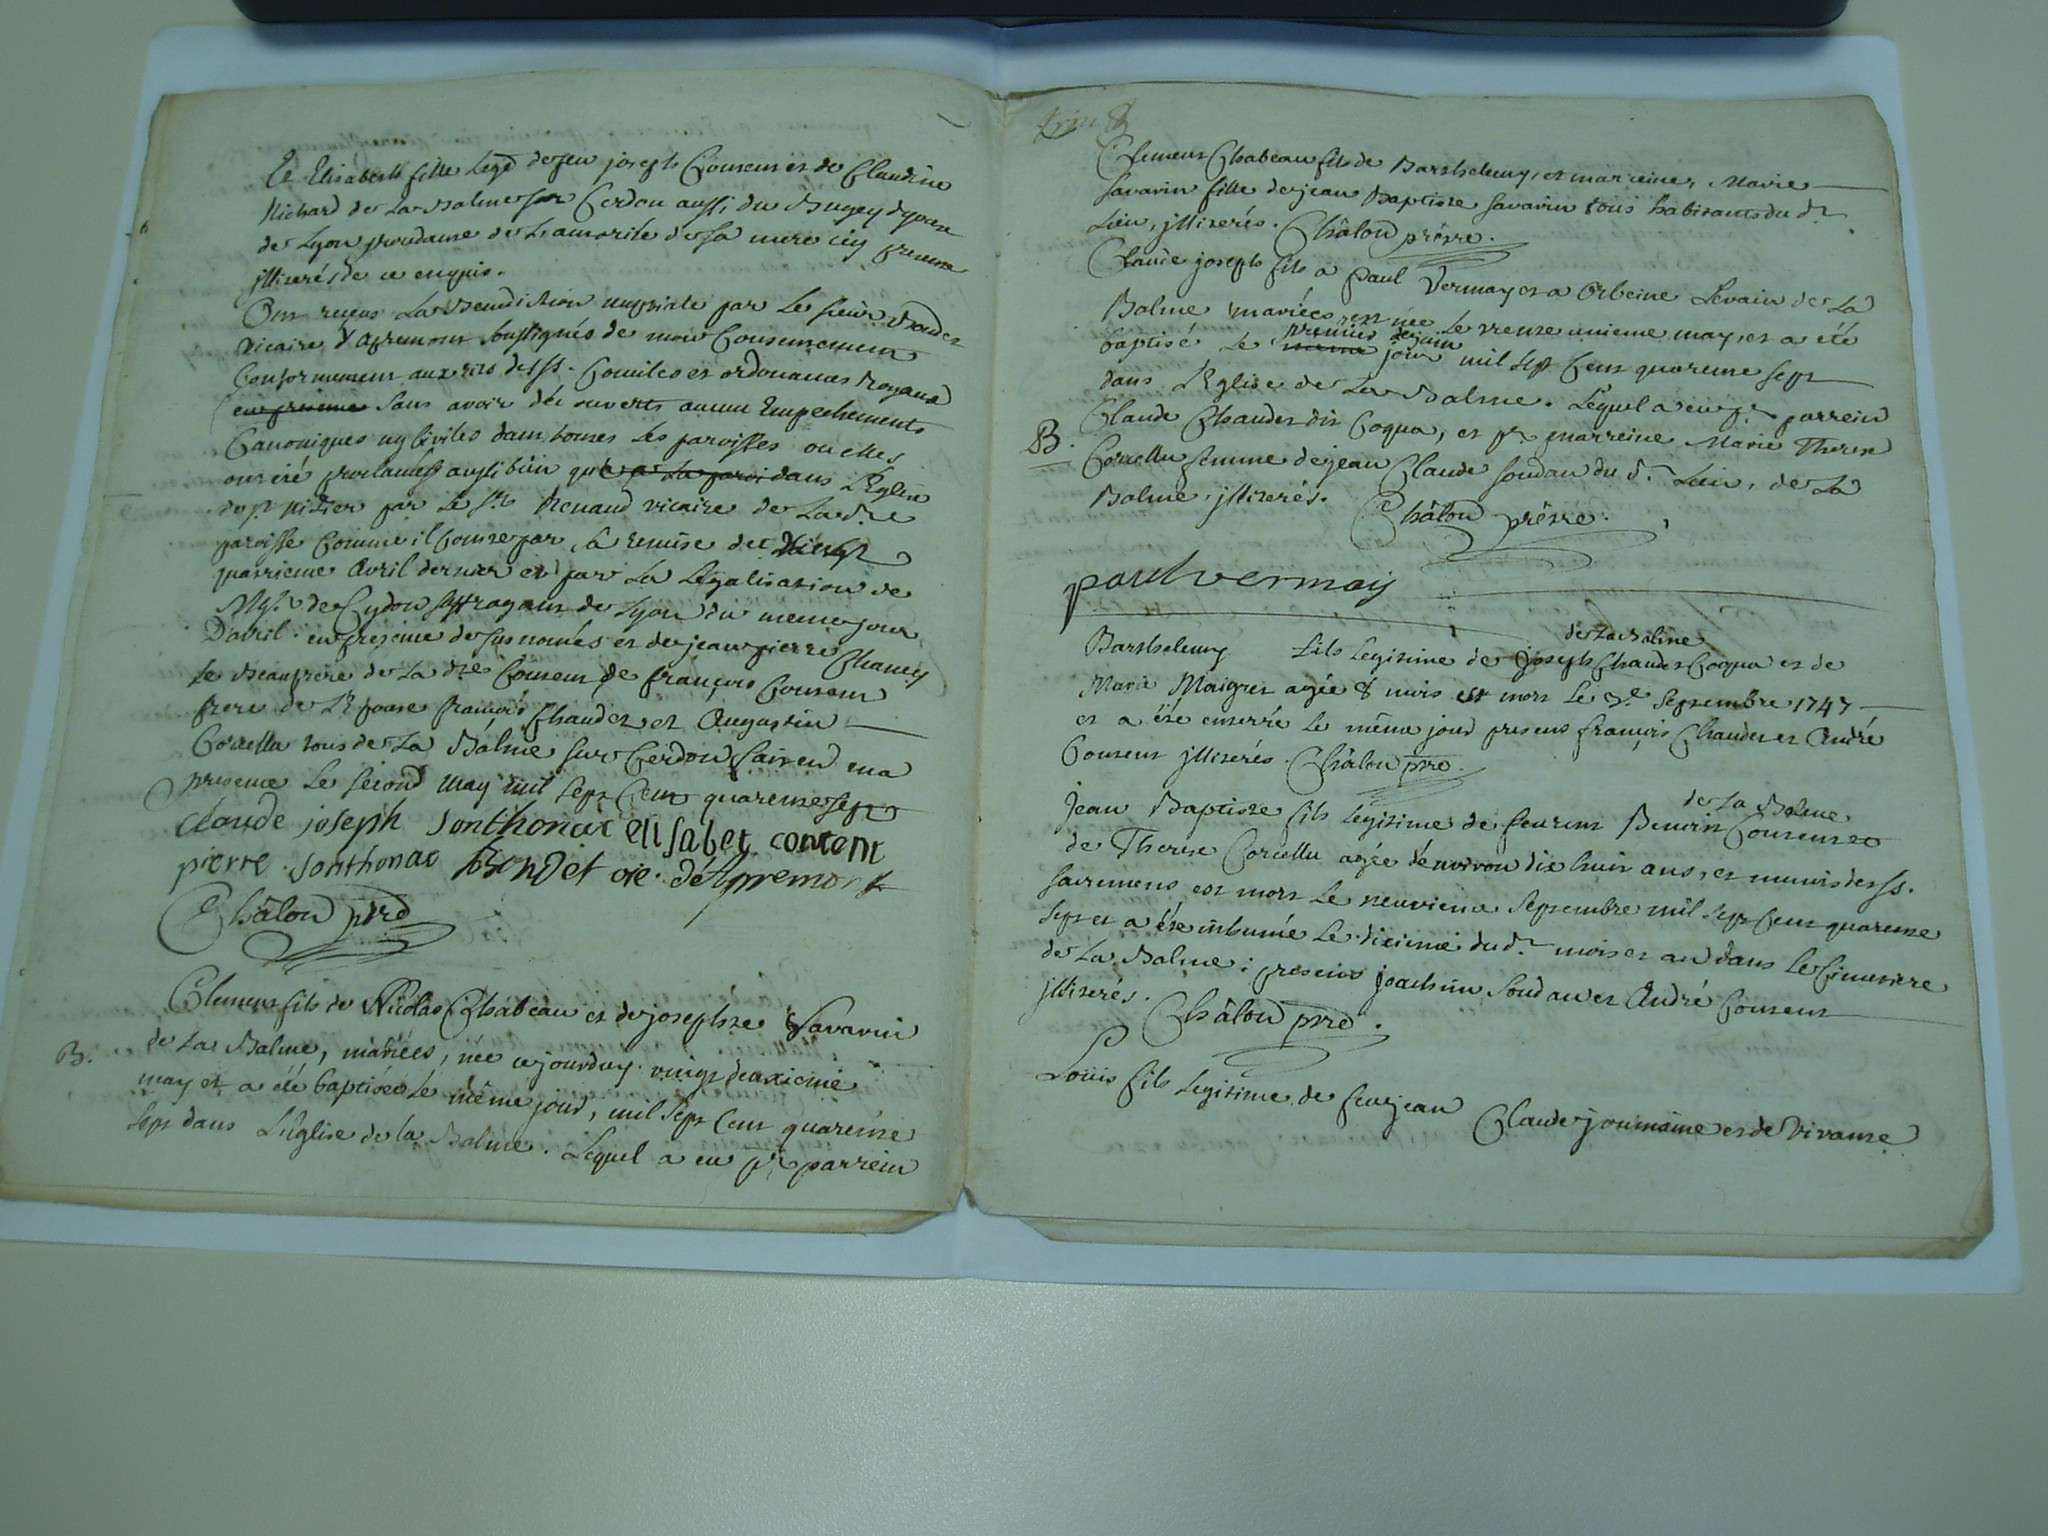 Et Elisabeth fille legé de feu joseph Consens et de Claudine
Richard de La Balme sur Cerdon aussi du Bugey
de Lyon procedanse de L'autorité de sa mere icy presente
illiterés de ce enquis.
Ont reçus La Benediction nuptiale par Le sieur Bondet
vicaire d'Apremont soussignés de mon Consentement
Conformement aux de SS. Conciles et ordonances Royaux
sans avoir découverts aucun Empechements
Canoniques ny Civiles dans toutes Les paroisses ou elles
ont été proclamés aussi bien que dans L'Eglise
de par Le Sr. Renaud vicaire de La d.te
paroisse Comme il Conste par sa remise de vingt
quatrieme Avril dernier et par La Legalisation de
Mgr. de Cydon suffragant de Lyon du meme jour
D'avril. en presence de susnomés et de jean pierre Chaney
Le Beaufrere de La d.te Consens de françois Consens
frere de L'Epouse françois Chaudet et Augustin
Corcella tous de La Balme sur Cerdon fait en ma
presence Le second may mil sept Cent quarente sept
claude joseph sonthonax elisabet content
pierre sonthonax Bondet vie. d'Apremont
Châlon ptre
Clement fils de Nicolas Chabeau et de josephte Savarin
B. de La Balme, mariées, née ce jourduy vingt deuxieme
may et a été baptisée Le même jour, mil sept Cent quarente
sept dans L'Eglise de la Balme. Lequel a eu pr. parrein
Clement Chabeau fils de Barthelemy, et marreine, Marie
Savarin fille de jean Baptiste Savarin tous habitants du dt.
Lieu, illiterés. Châlon prêtre.
Claude joseph fils a paul Vermay et a Orbeine Levain de La
Balme mariées est née Le trente unieme may, et a été
premier de juin
baptisé Le jour mil sept Cent quarente sept
dans L'Eglise de La Balme. Lequel a eu pr. parrein
Claude Chaudet dit Coqua, et pr. marreine Marie Therese
B. Corcella femme de jean Claude Soudan du dt. Lieu, de La
Balme, illiterés. Châlon prêtre.
paul vermay
de La Balme
Barthelemy fils Legitime de Joseph Chaudet Coqua et de
Marie Maigret agée 8 mois est mort Le 3.e Septembre 1747
et a été enterré Le même jour presens françois Chaudet et André
Consens illiterés. Châlon ptre.
de La Balme
Jean Baptiste fils Legitime de feu Benoit Consens et
de Therese Corcella agée d'environ dix huit ans, et munis des SS.
sacremens est mort Le neuvieme Septembre mil sept Cent quarente
sept et a été inhumé Le dixieme du dt. mois et an dans Le Cimetiere
de La Balme: presens joachim Soudan et André Consens
illiterés. Châlon ptre.
Loüis fils Legitime de feu jean Claude jounaine et de Vivanse